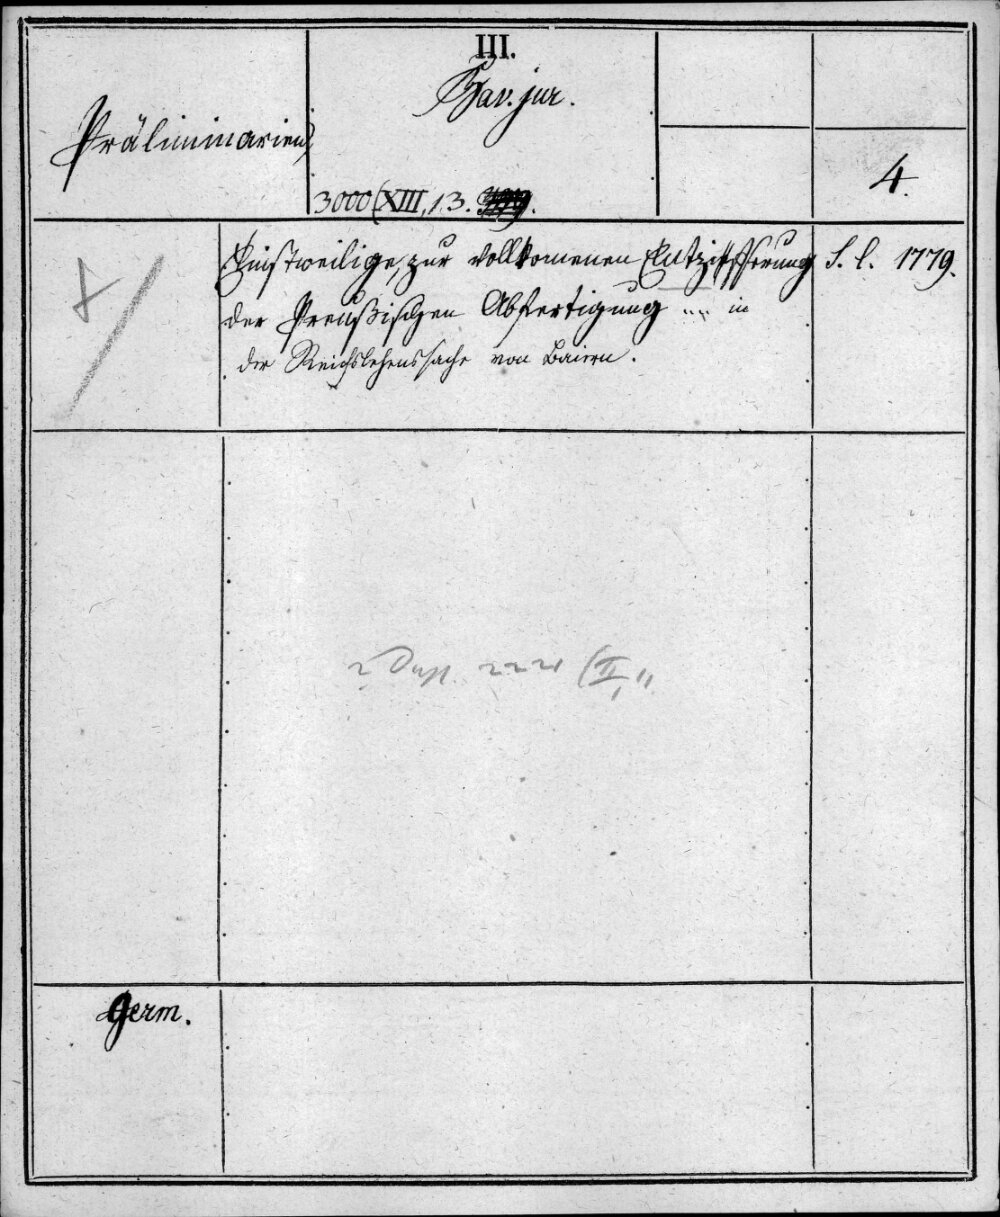 III.
Bav. jur.
Präliminarien,
4.
3000 (XIII, 13.
Einstweilige, zur vollkomenen Entzifferung S. l. 1779.
der Preußischen Abfertigung .... in
der Reichslehenssache von Baiern.
2 Dupl. 222 (II, 11
Germ.